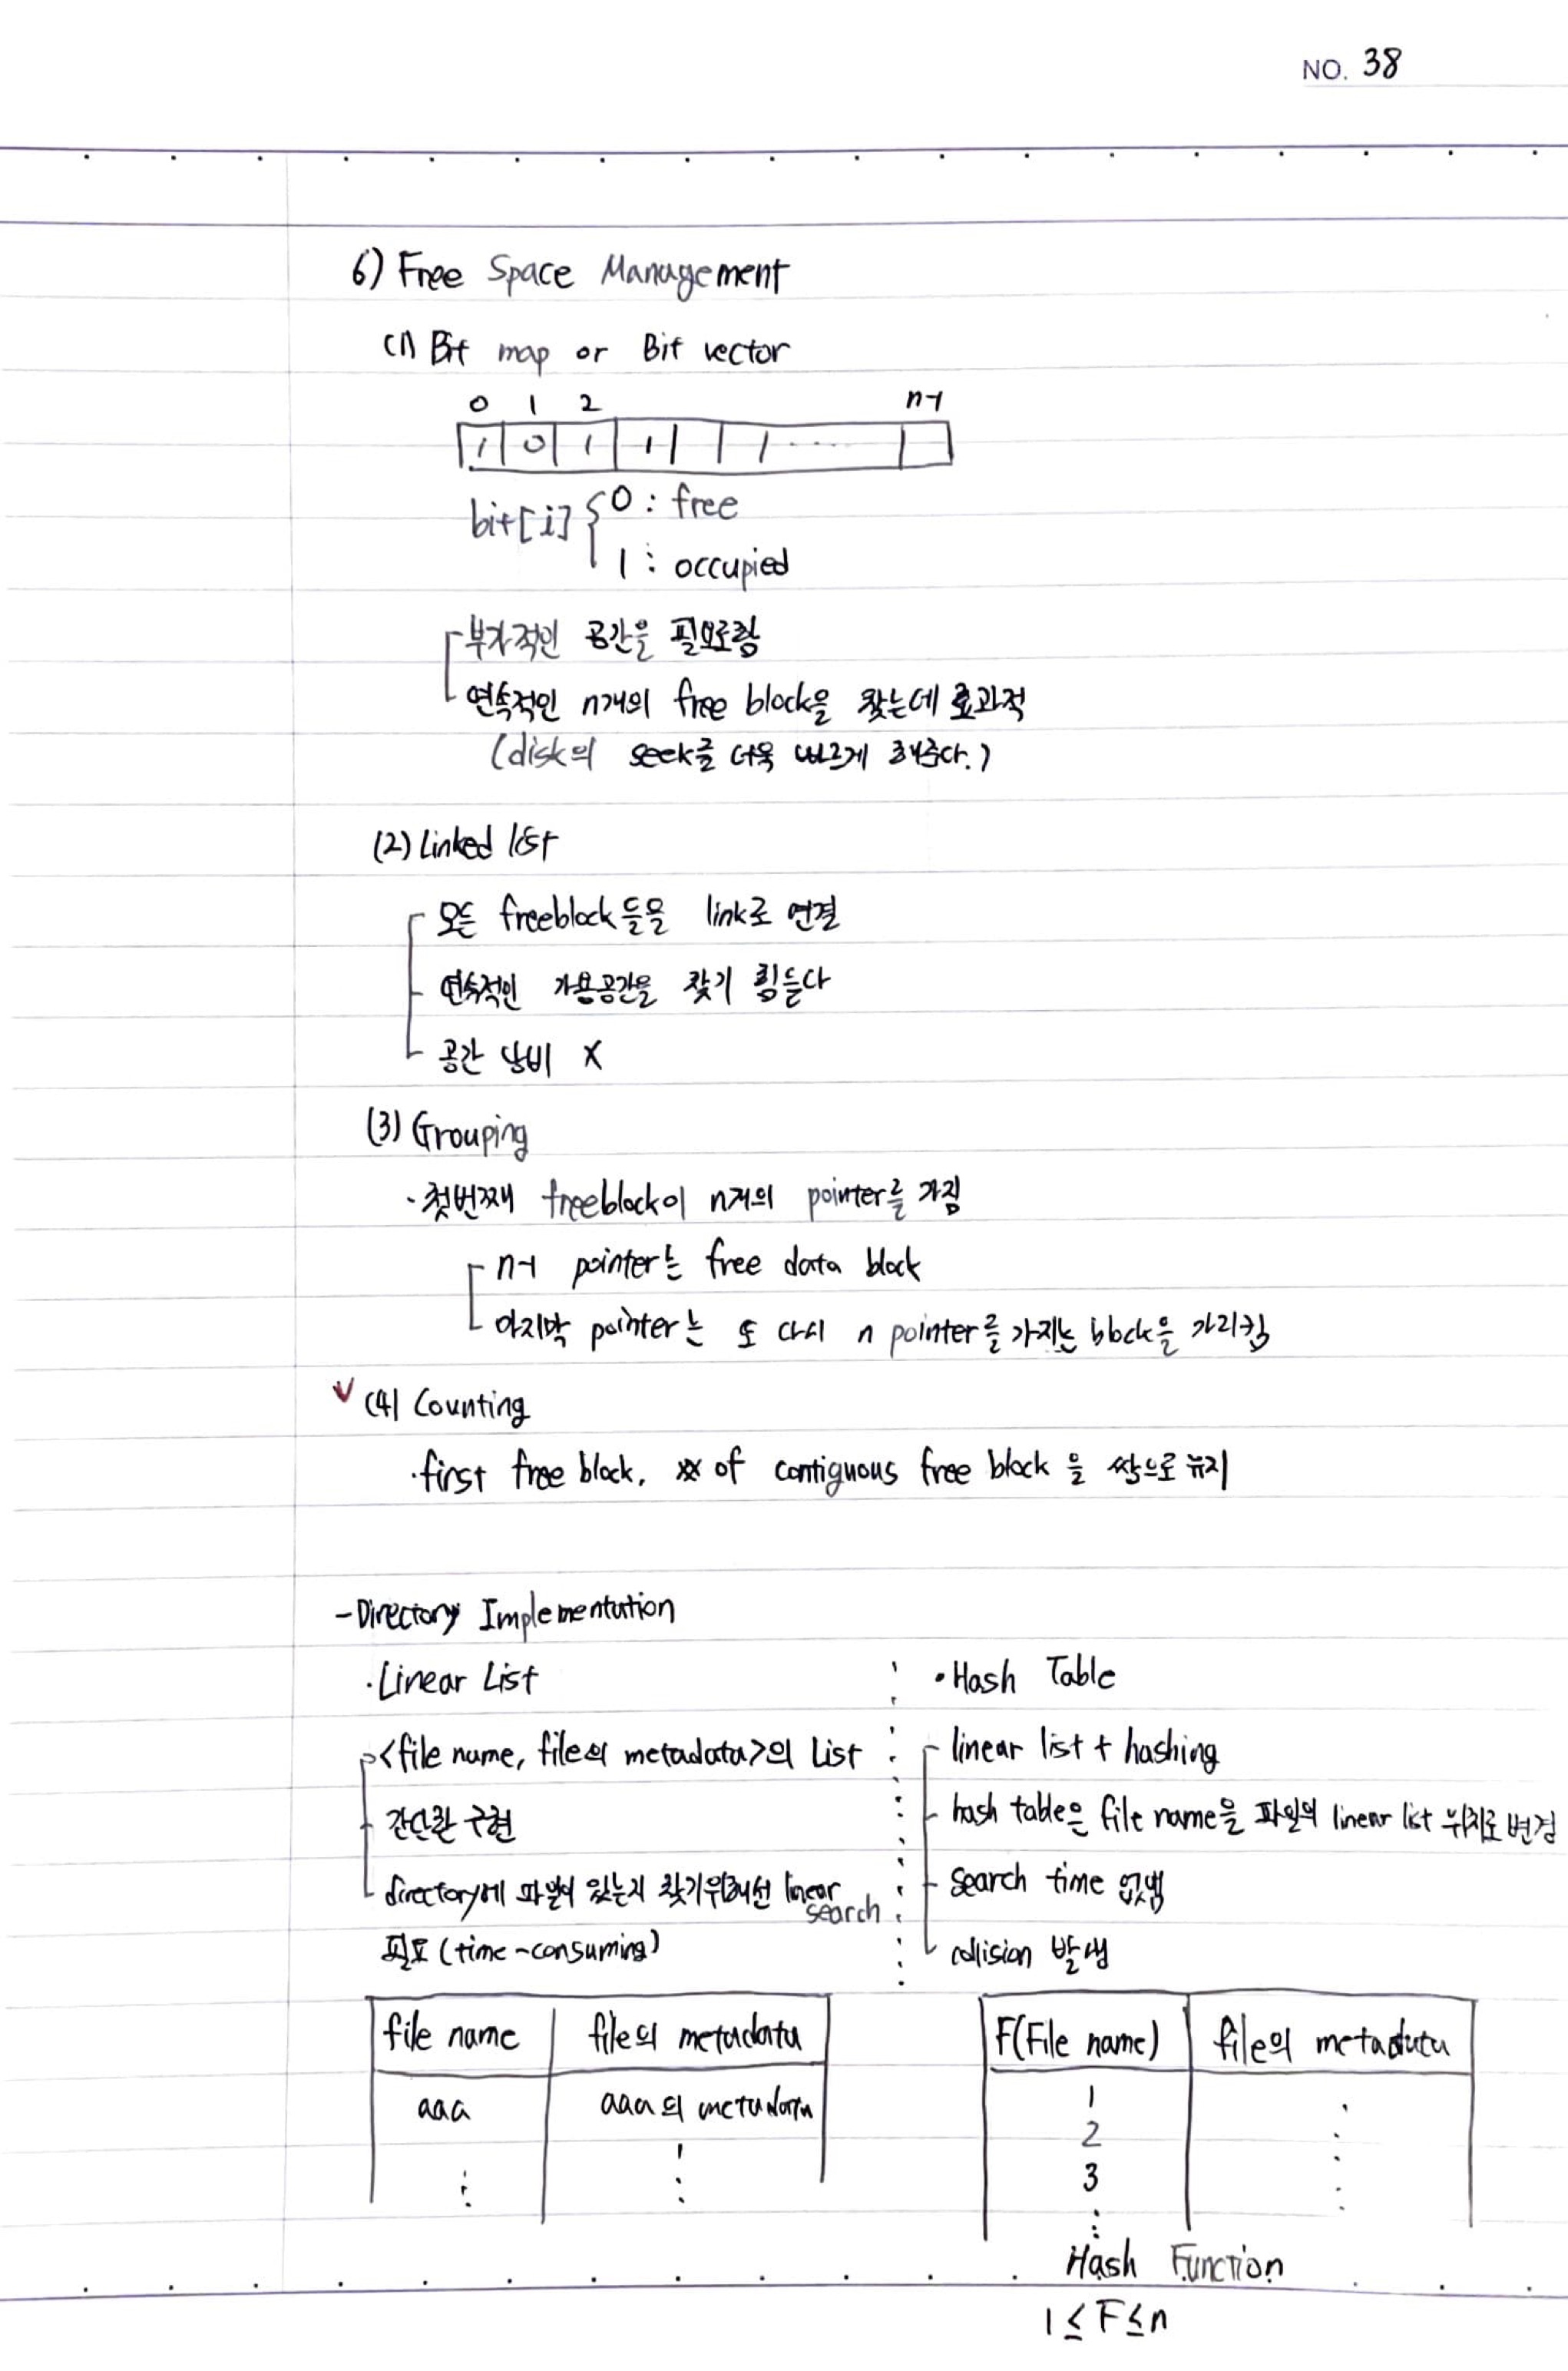 NO. 38
6) Free Space Management
(1) Bit map or Bit vector
0 1 2 n-1
1 0 1 1 ....
bit[i] { 0 : free
1 : occupied
부가적인 공간을 필요로함
연속적인 n개의 free block을 찾는데 효과적
(disk의 seek를 더욱 빠르게 해준다.)
(2) Linked list
모든 freeblock들을 link로 연결
연속적인 가용공간을 찾기 힘든다
공간 낭비 X
(3) Grouping
· 첫번째 freeblock이 n개의 pointer를 가짐
n-1 pointer는 free data block
마지막 pointer는 또 다시 n pointer를 가지는 block을 가리킴
✓ (4) Counting
· first free block, # of contiguous free block 을 쌍으로 유지
- Directory Implementation
· Linear List
<file name, file의 metadata>의 List
간단한 구현
directory에 파일이 있는지 찾기위해선 linear search
필요 (time-consuming)
file name file의 metadata
aaa aaa의 metadata
⋮ ⋮
• Hash Table
linear list + hashing
hash table은 file name을 파일의 linear list 위치로 변경
search time 없앰
collision 발생
F(File name) file의 metadata
1
2
3
⋮
Hash Function
1 ≤ F ≤ n